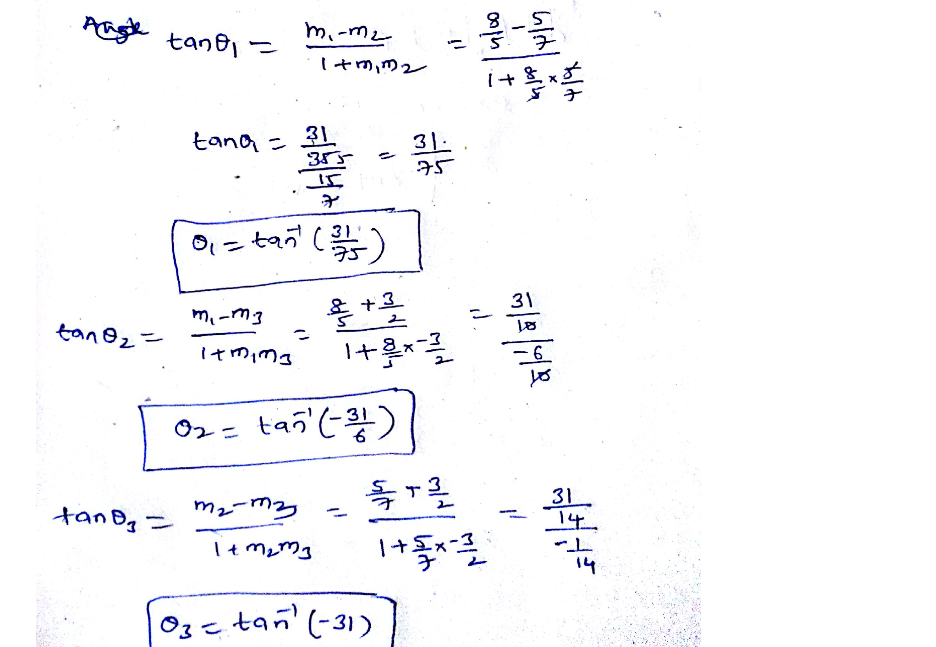 Angle tanθ₁ = (m₁-m₂)/(1+m₁m₂) = (8/5 - 5/7)/(1 + 8/5 × 5/7)
tanθ₁ = (31/355)/(15/7) = 31/75
θ₁ = tan⁻¹(31/75)
tanθ₂ = (m₁-m₃)/(1+m₁m₃) = (8/5 + 3/2)/(1 + 8/5 × -3/2) = (31/10)/(-6/10" style="display:none">
θ₂ = tan⁻¹(-31/6)
tanθ₃ = (m₂-m₃)/(1+m₂m₃) = (5/7 + 3/2)/(1 + 5/7 × -3/2) = (31/14)/(-1/14)
θ₃ = tan⁻¹(-31)